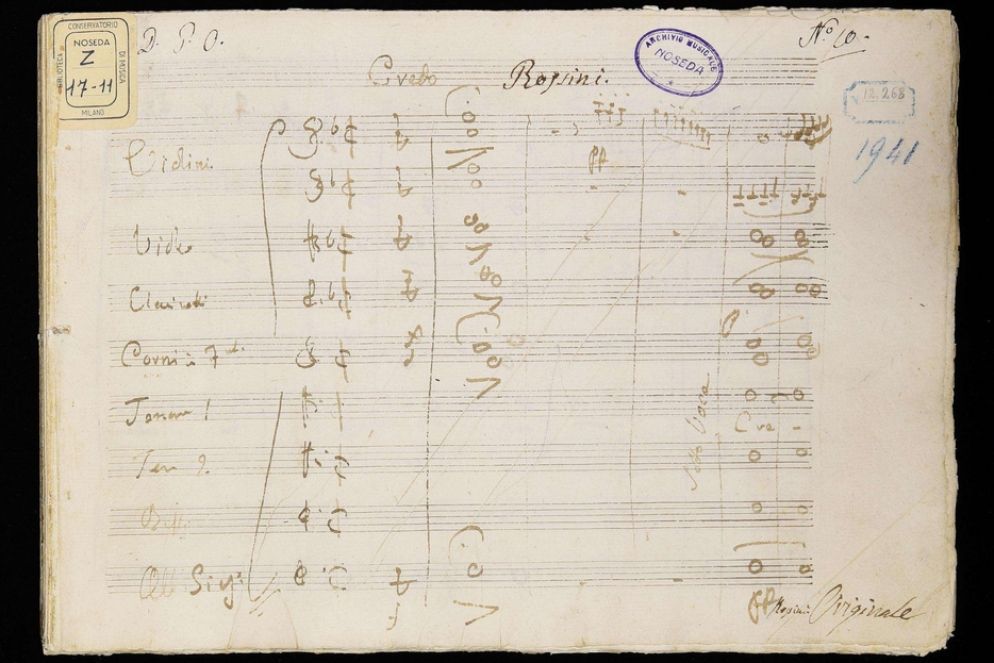 CONSERVATORIO
BIBLIOTECA
NOSEDA
Z
17-11
DI MUSICA
MILANO
D. P. O.
ARCHIVIO MUSICALE
NOSEDA
N.º 10.
Credo Rossini.
12.268
1941
Violini
Viole
Clarinetti
Corni in F
Tenor 1
pp
Ten 2.
Sotto Voce
Cre -
Bassi
pp Rossini Originale